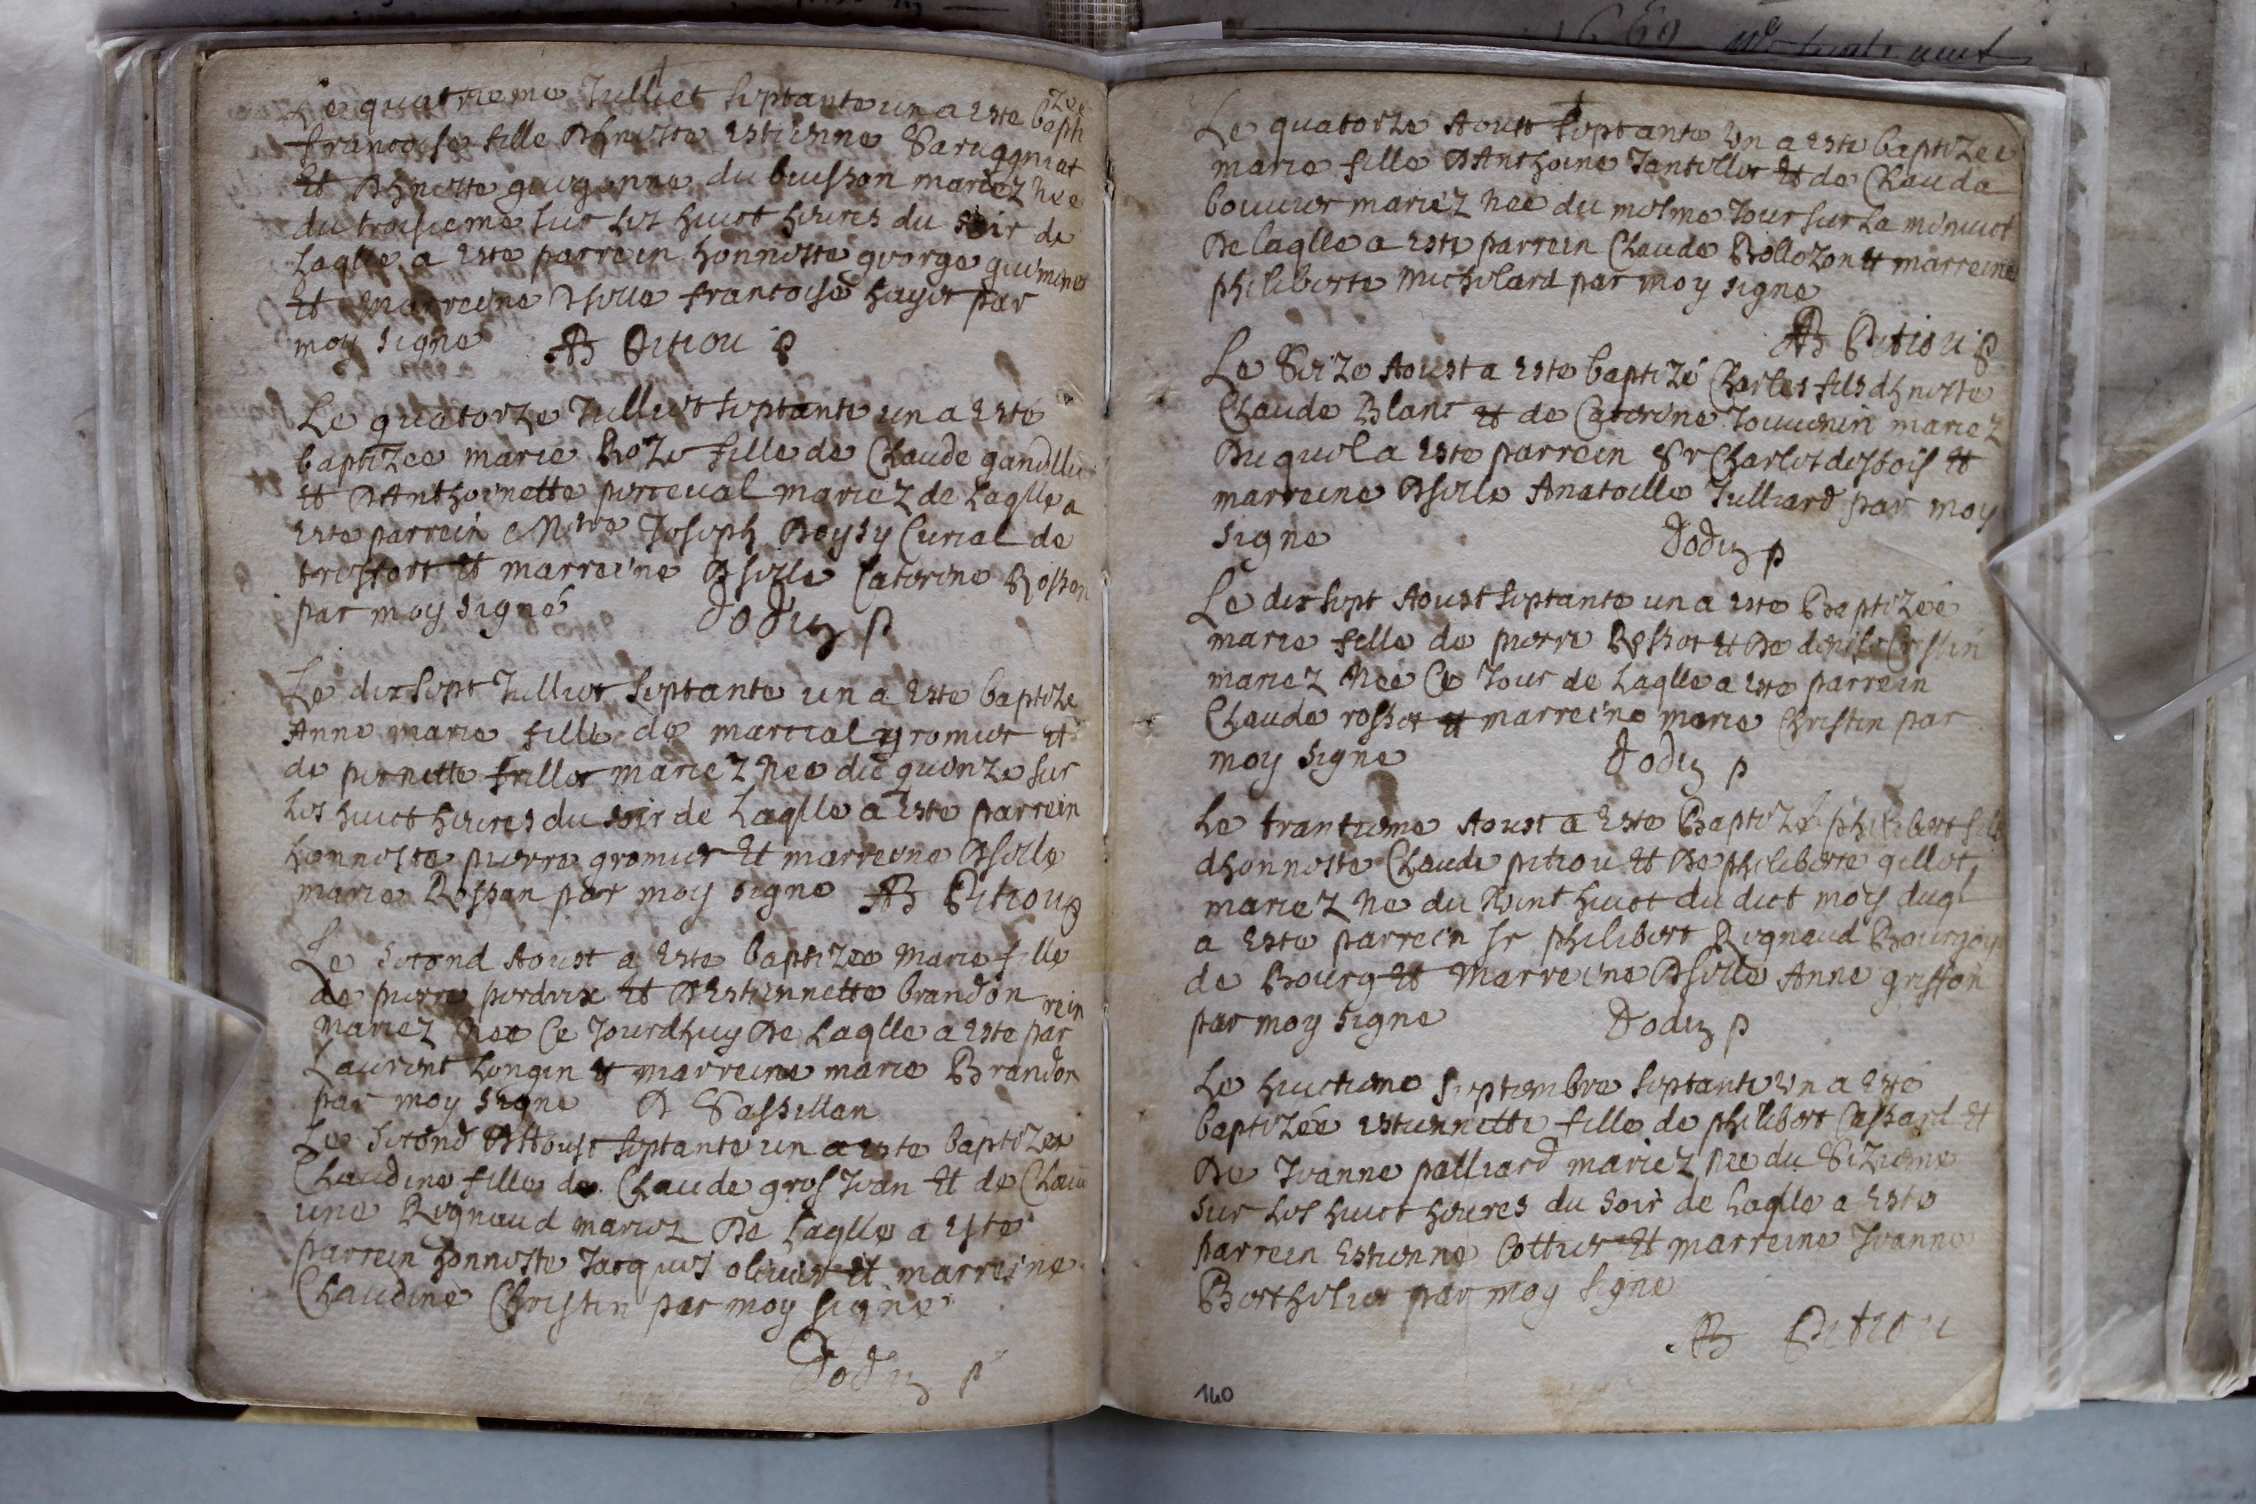 Le quatrieme Julliet septante un a este baptizee
francoise fille dhneste estienne Sarruggniat
et dhneste guigonne du buisson mariez nee
du troisieme sur les huict heures du soir de
laqlle a este parrein honneste george
et marreine dsolle francoise hayer par
moy signe AB Petiou p
Le quatorze Julliet septante un a este
baptizee marie Roze fille de Claude gandllie
et dAnthoinette perceval mariez de laqlle a
este parrein Mtre Joseph Boysy Curial de
treffort et marreine dsolle Caterine Rossan
par moy signé Dodin p
Le dix sept Julliet septante un a este baptize
Anne marie fille de martial gromier et
de pernette frillet mariez nee du quinze sur
les huict heures du soir de laqlle a este parrein
honneste pierre gromier et marreine dsolle
marie Rossan par moy signe AB Petiou p
Le second Aoust a este baptizee marie fille
de pierre perdrix et dEstiennette brandon
mariez nee ce Jourdhuy de laqlle a este parrein
Laurent longin et marreine marie Brandon
par moy signe D Sassillan
Le second Aoust septante un a este baptizee
Claudine fille de Claude grosJean et de Claud
ine Regnaud mariez de laqlle a este
parrein honneste Jacques olivier et marreine
Claudine Christin par moy signe
Dodin p
Le quatorze Aoust septante un a este baptizee
marie fille dAnthoine Jantellet et de Claude
bouuier mariez nee du mesme Jour sur la minuict
de laqlle a este parrein Claude Bollozon et marreine
philiberte Michelard par moy signe
AB Petiou p
Le Seize Aoust a este baptizé Charles fils dhneste
Claude Blanc et de Caterine Jouuenin mariez
duquel a este parrein Sr Charles desbois et
marreine dsolle Anatoille Julliard par moy
signe Dodin p
Le dix sept Aoust septante un a este Baptizée
marie fille de pierre Rosset et de denise Crestin
mariez nee ce Jour de laqlle a este parrein
Claude rosset et marreine marie Christin par
moy signe Dodin p
Le trantieme Aoust a este Baptizé philibert fils
dhonneste Claude petiou et de philiberte gillet
mariez ne du vint huict du dict moys duql
a este parrein Sr philibert Regnaud Bourgoys
de Bourg et marreine dsolle Anne griffon
par moy signe Dodin p
Le huictieme Septembre septante un a este
baptizée estiennette fille de philibert Cassard et
de Jeanne palliard mariez nee du Sizieme
sur les huict heures du soir de laqlle a este
parrein Estienne Cottier et marreine Jeanne
Berthelier par moy signe
AB Petiou
140